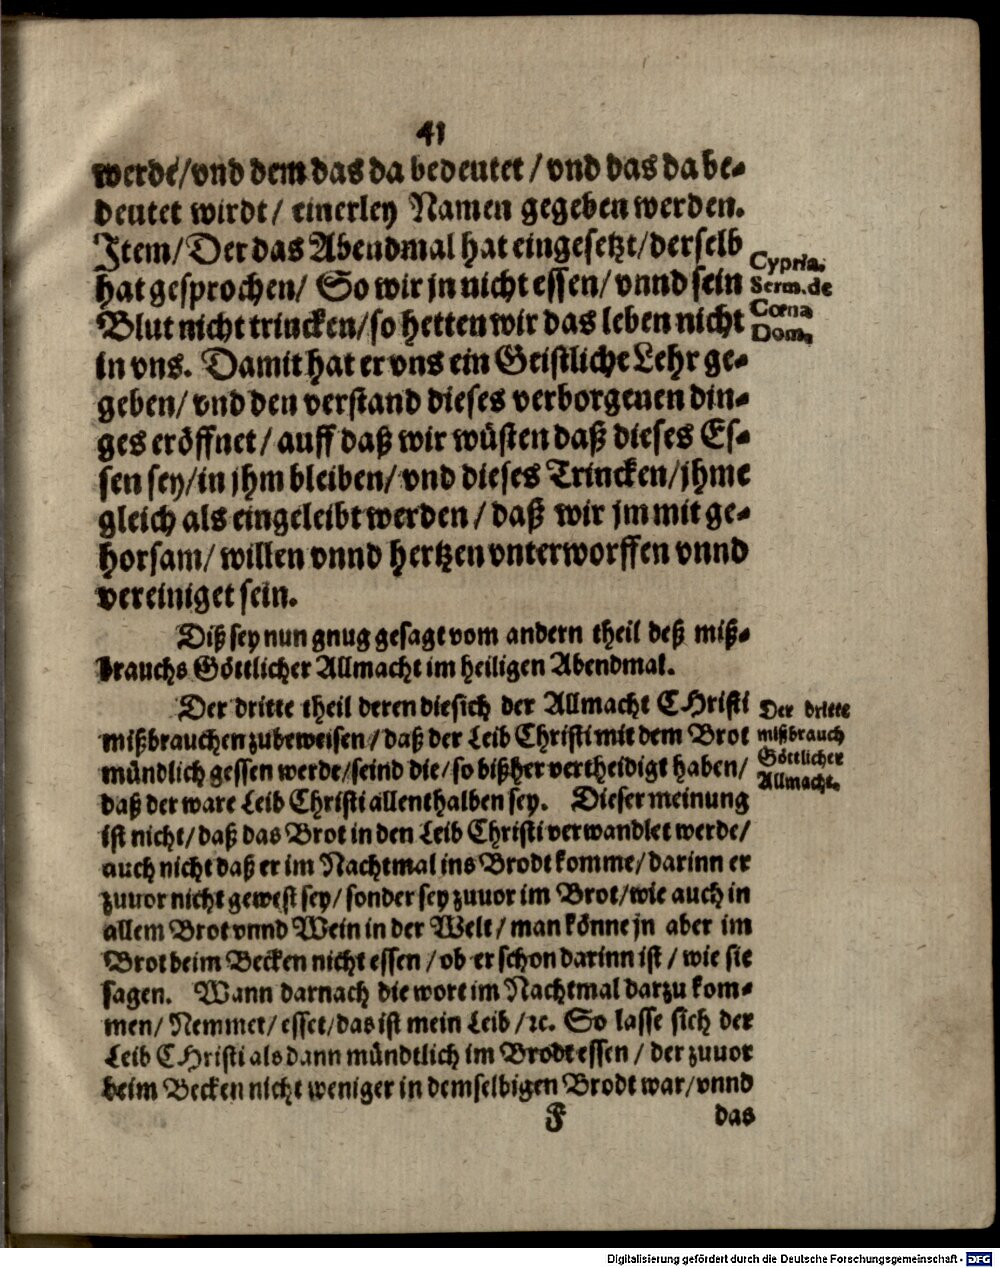 41
werde/vnd dem das da bedeutet/vnd das da be-
deutet wirdt/ einerley Namen gegeben werden.
Item/Der das Abendmal hat eingesetzt/derselb
hat gesprochen/ So wir jn nicht essen/ vnnd sein
Blut nicht trincken/so hetten wir das leben nicht
in vns. Damit hat er vns ein Geistliche Lehr ge-
geben/ vnd den verstand dieses verborgenen din-
ges eröffnet/ auff daß wir wüsten daß dieses Es-
sen sey/in jhm bleiben/ vnd dieses Trincken/jhme
gleich als eingeleibt werden/ daß wir jm mit ge-
horsam/ willen vnnd hertzen vnterworffen vnnd
vereiniget sein.
Cypria.
Serm. de
Coena
Dom.
Diß sey nun gnug gesagt vom andern theil deß miß-
brauchs Göttlicher Allmacht im heiligen Abendmal.
Der dritte theil deren die sich der Allmacht CHristi
mißbrauchen zubeweisen/ daß der Leib Christi mit dem Brot
mündlich gessen werde/seind die/ so bißher vertheidigt haben/
daß der ware Leib Christi allenthalben sey. Dieser meinung
ist nicht/ daß das Brot in den Leib Christi verwandlet werde/
auch nicht daß er im Nachtmal ins Brodt komme/ darinn er
zuuor nicht gewest sey/ sonder sey zuuor im Brot/wie auch in
allem Brot vnnd Wein in der Welt/ man könne jn aber im
Brot beim Becken nicht essen/ ob er schon darinn ist/ wie sie
sagen. Wann darnach die wort im Nachtmal darzu kom-
men/ Nemmet/ esset/das ist mein Leib/ ꝛc. So lasse sich der
Leib CHristi als dann mündtlich im Brodt essen/ der zuuor
beim Becken nicht weniger in demselbigen Brodt war/ vnnd
Der dritte
mißbrauch
Göttlicher
Allmacht.
F das
Digitalisierung gefördert durch die Deutsche Forschungsgemeinschaft - DFG